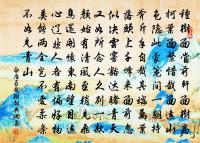 種樹當前軒樹高
柯葉繁惜哉遠山
色隱此蒙籠間一朝持
斧斤手自截其端萬葉
落頭上千峰來面前忽
似決雲霧豁達睹青天
又如所念人久別一款
顏始有清風至稍見飛
鳥還開懷東南望目遠
心遼然人各有偏好物
莫能兩全豈不愛柔條
不如見青山